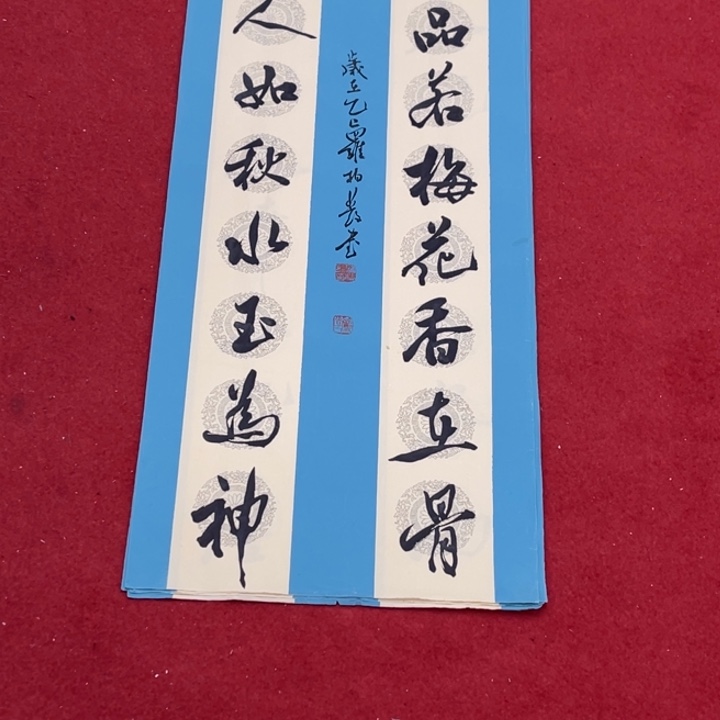 品若梅花香在骨
人如秋水玉為神
歲在乙巳羅